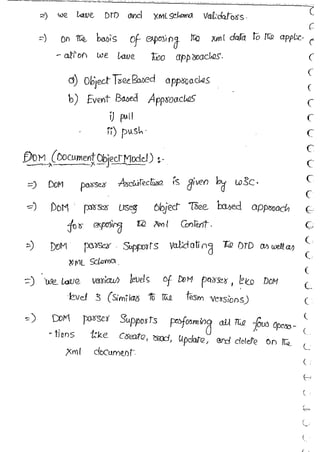 =) we have DTD and XML schema validators.
=) on the basis of exposing the xml data to the applic-
-ation we have two approaches.
a) Object Tree Based approaches
b) Event Based Approaches
i) pull
ii) push
DOM (Document Object Model) :-
=) DOM parser Architecture is given by W3C.
=) DOM parser uses object Tree based approach
for exposing the xml content.
=) DOM parser Supports validating the DTD as well as
XML Schema.
=) we have various levels of DOM parser, like DOM
level 3 (similar to the term versions)
=) DOM parser Supports performing all the four opera-
-tions like create, read, update, and delete on the
xml document.